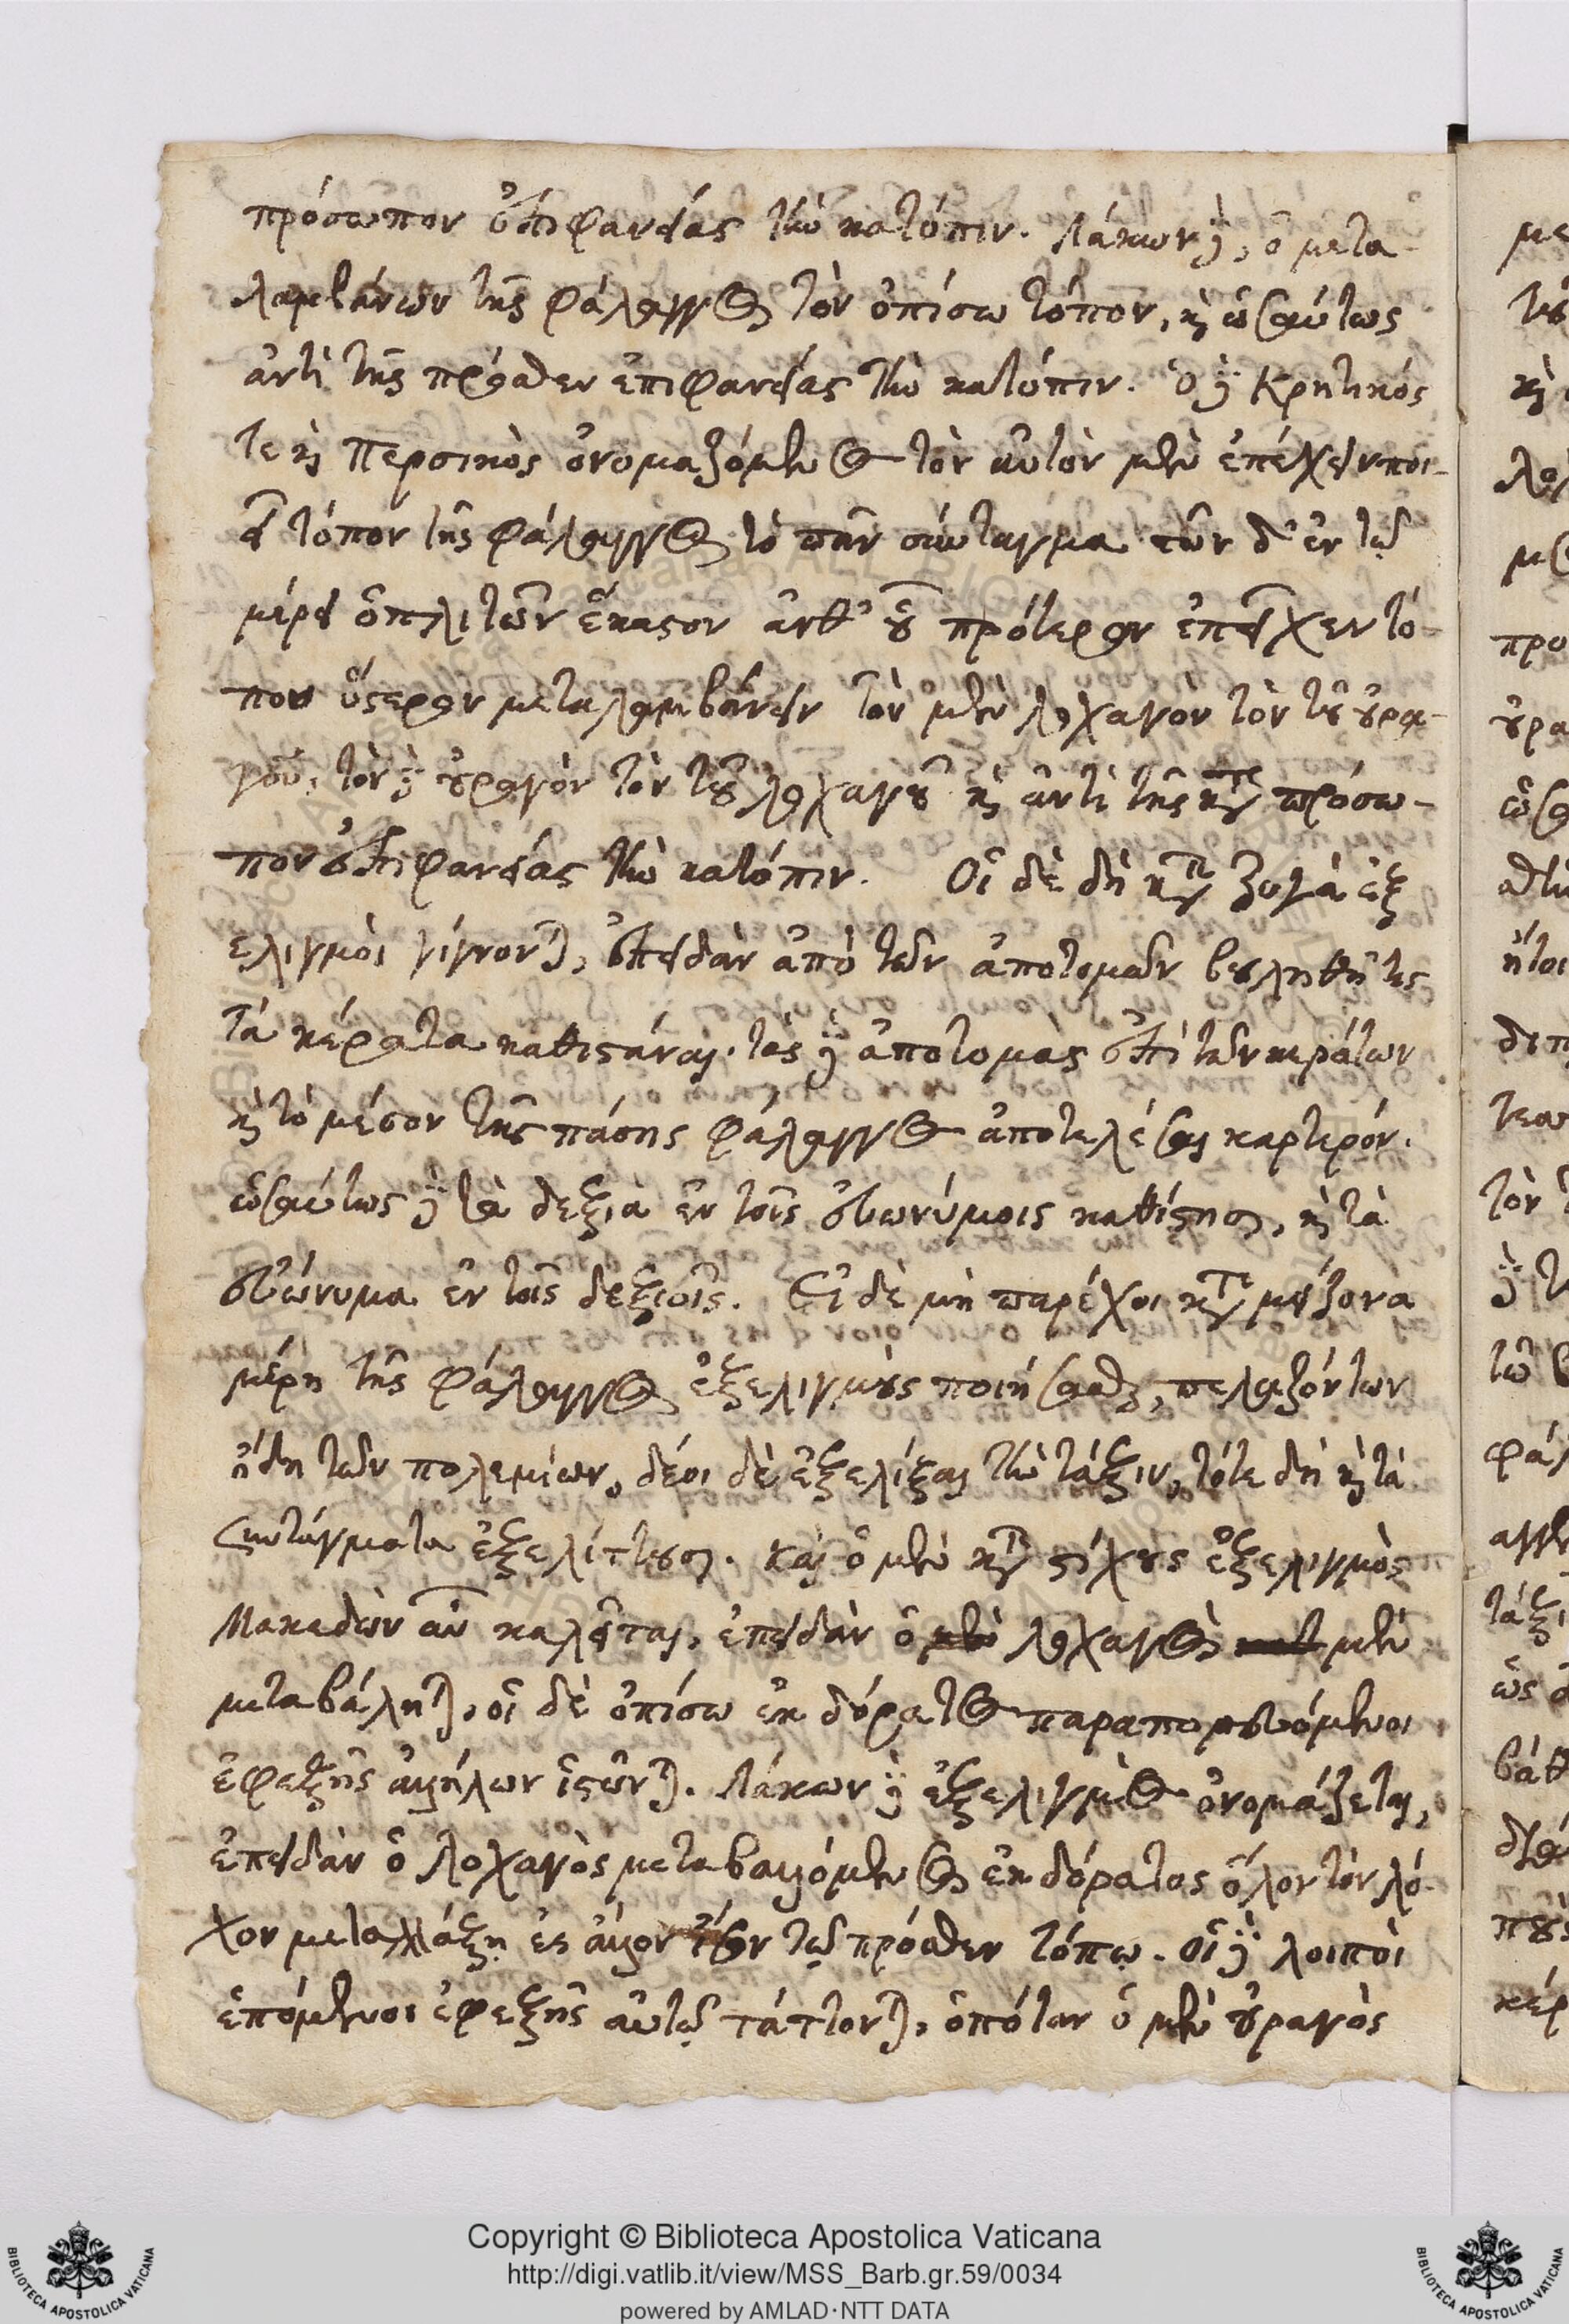 πρόσωπον ἐπιφανείας τὴν κατόπιν. Λάκων δὲ, ὁ μετα-
λαμβάνων τῆς φάλαγγος τὸν ὀπίσω τόπον, καὶ ὡσαύτως
ἀντὶ τῆς πρόσθεν ἐπιφανείας τὴν κατόπιν. Ὁ δὲ Κρητικός
τε καὶ Περσικὸς ὀνομαζόμενος τὸν αὐτὸν μὲν ἐπέχειν ποι-
εῖ τόπον τῆς φάλαγγος τὸ πᾶν σύνταγμα τῶν δ' ἐν τῷ
μέρει ὁπλιτῶν ἕκαστον ἀνθ' οὗ πρότερον ἐπεῖχεν τό-
που ὕστερον μεταλαμβάνειν τὸν μὲν λοχαγὸν τὸν τοῦ οὐρα-
γοῦ, τὸν δὲ οὐραγὸν τὸν τοῦ λοχαγοῦ καὶ ἀντὶ τῆς κατὰ πρόσω-
πον ἐπιφανείας τὴν κατόπιν. Οἱ δὲ δὴ κατὰ ζυγὰ ἐξ
ελιγμοὶ γίγνονται, ἐπειδὰν ἀπὸ τῶν ἀποτομῶν βουληθῇ τις
τὰ κέρατα καθιστάναι. τὰς δὲ ἀποτομὰς ἐπὶ τῶν κεράτων
καὶ τὸ μέσον τῆς πάσης φάλαγγος ἀποτελέσαι καρτερόν.
ὡσαύτως δὲ τὰ δεξιὰ ἐν τοῖς εὐωνύμοις καθίστησι, καὶ τὰ
εὐώνυμα ἐν τοῖς δεξιοῖς. Εἰ δὲ μὴ παρέχοι κατὰ μείζονα
μέρη τῆς φάλαγγος ἐξελιγμοὺς ποιήσασθαι, πελαζόντων
ἤδη τῶν πολεμίων, δέοι δὲ ἐξελίξαι τὴν τάξιν, τότε δὴ κατὰ
συντάγματα ἐξελίττουσι. Καὶ ὁ μὲν κατὰ στίχους ἐξελιγμὸς
Μακεδὼν ἂν καλεῖται, ἐπειδὰν ὁ μὲν λοχαγὸς μὲν
μεταβάληται, οἱ δὲ ὀπίσω ἐκ δόρατος παραπορευόμενοι
ἐφεξῆς ἀλλήλων ἱστῶνται. Λάκων δὲ ἐξελιγμὸς ὀνομάζεται,
ἐπειδὰν ὁ λοχαγὸς μεταβαλλόμενος ἐκ δόρατος ὅλον τὸν λό-
χον μεταλλάξῃ ἐς ἄλλον ἴσον τῷ πρόσθεν τόπῳ. οἱ δὲ λοιποὶ
ἑπόμενοι ἐφεξῆς αὐτῷ τάττονται, ὁπόταν ὁ μὲν οὐραγὸς
Copyright © Biblioteca Apostolica Vaticana
http://digi.vatlib.it/view/MSS_Barb.gr.59/0034
powered by AMLAD·NTT DATA
BIBLIOTECA APOSTOLICA VATICANA
BIBLIOTECA APOSTOLICA VATICANA